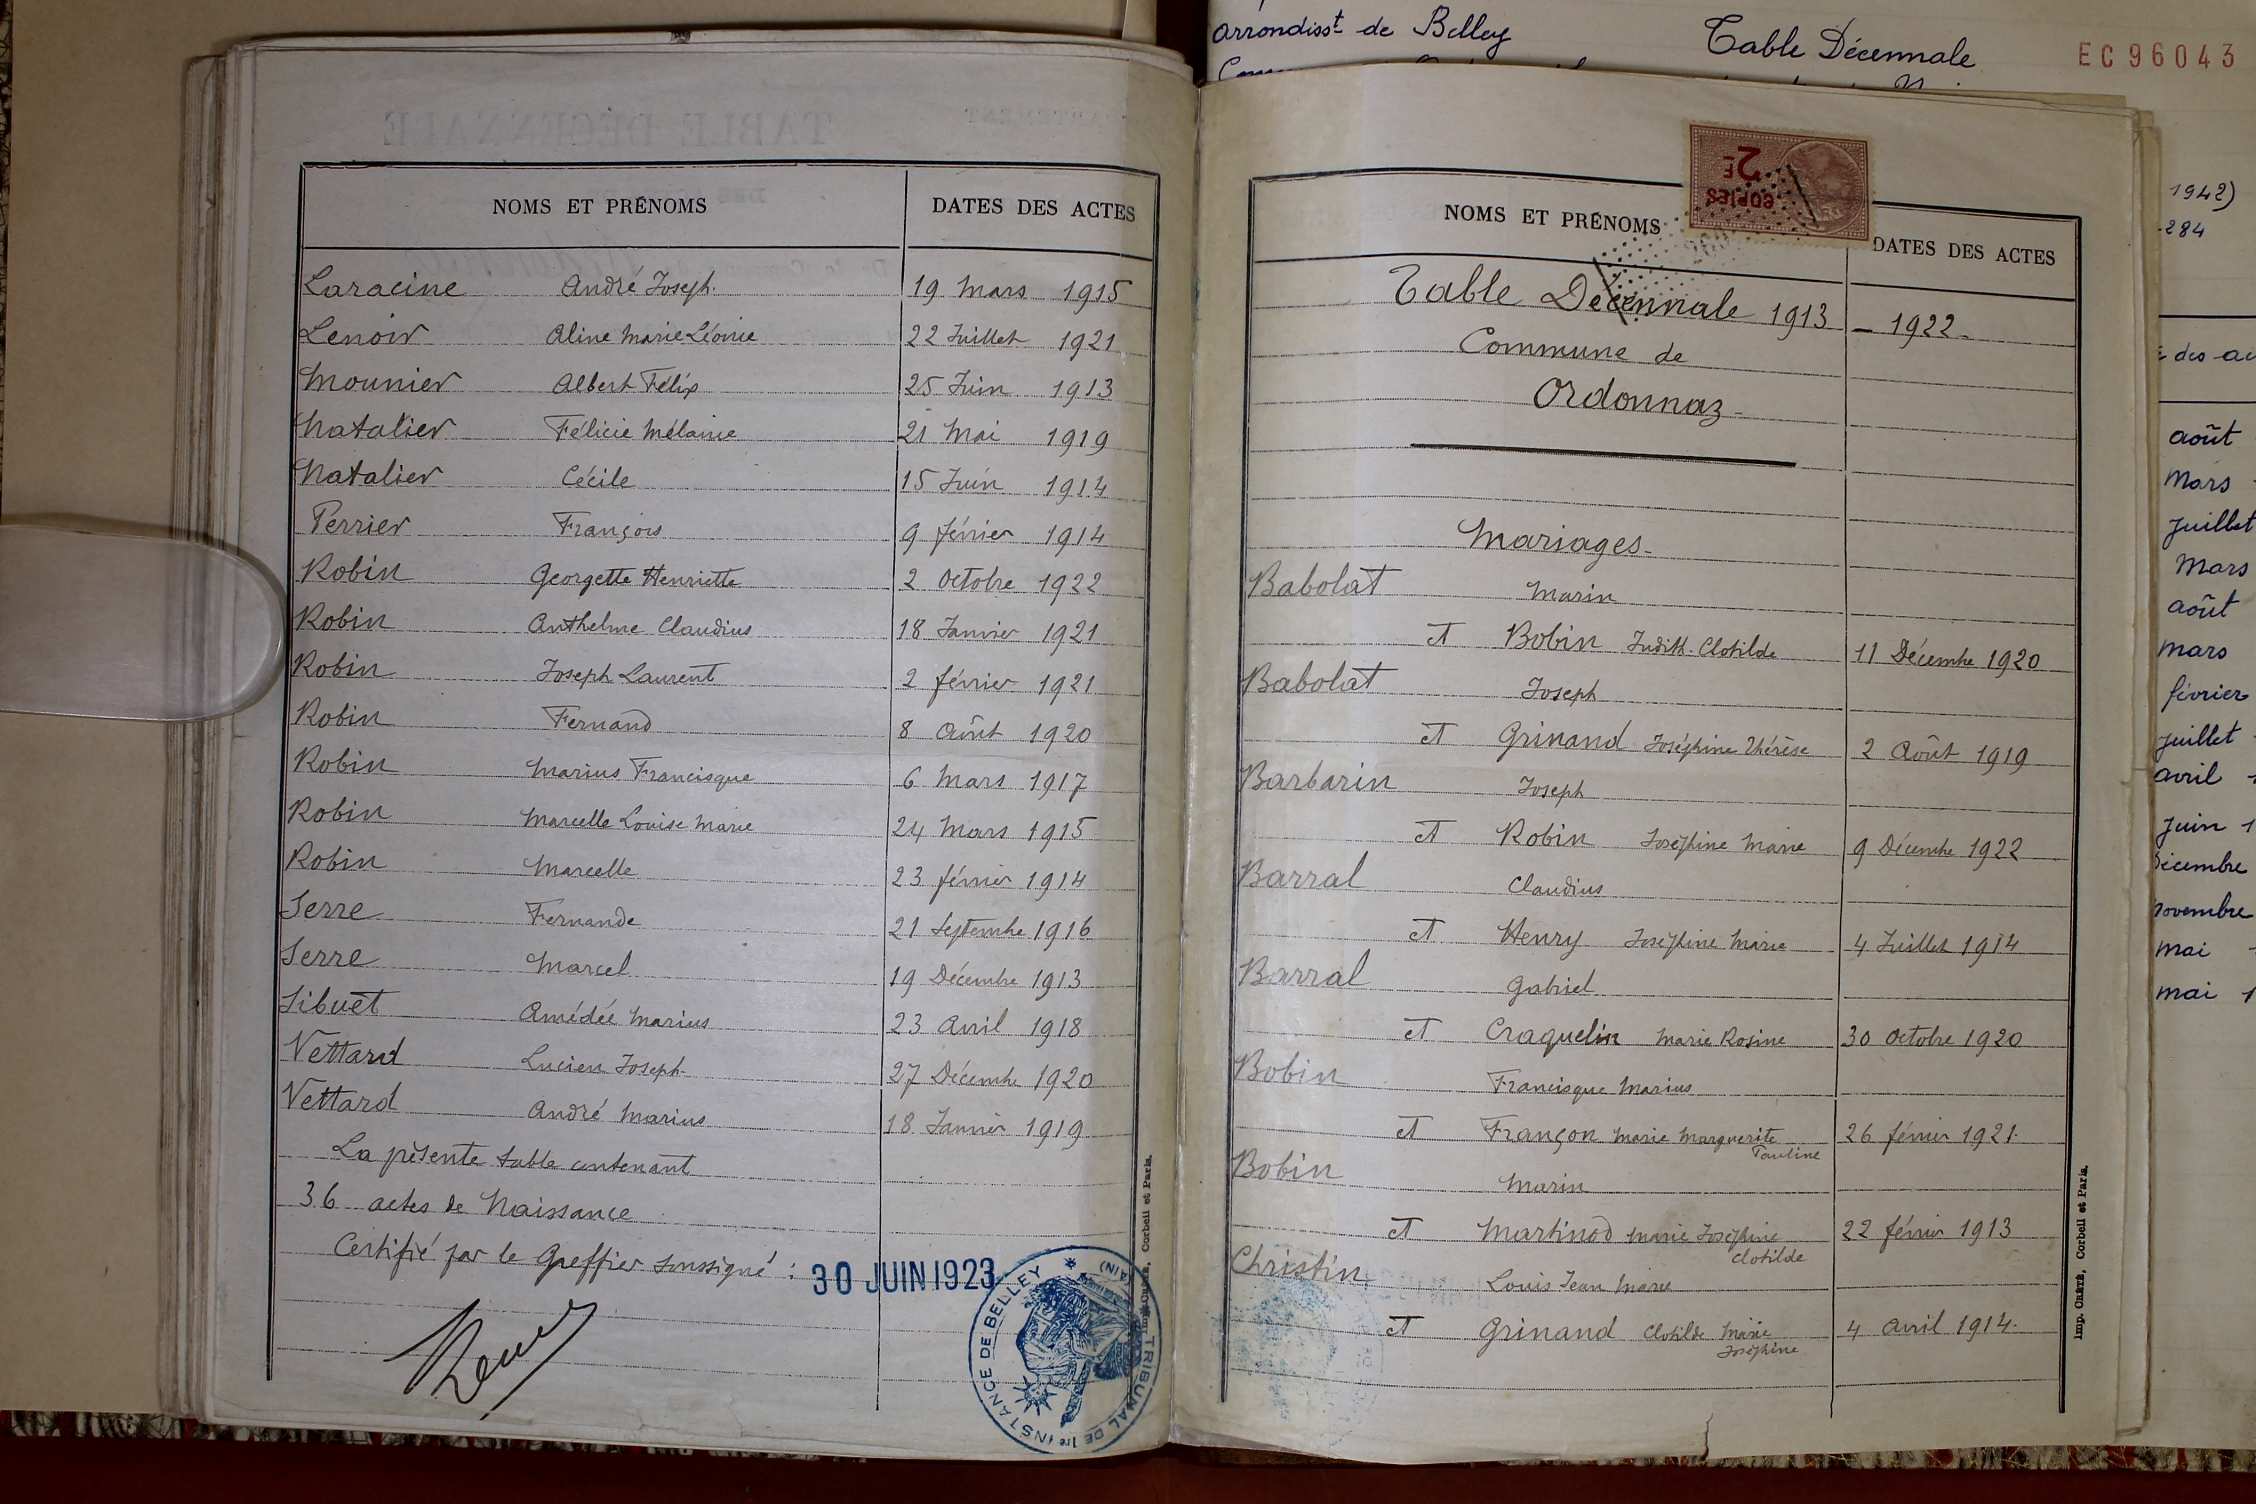 arrondisst de Belley
Table Décennale
EC96043
NOMS ET PRÉNOMS DATES DES ACTES
Laracine André Joseph. 19 Mars 1915
Lenoir Aline Marie Léonie 22 Juillet 1921
Mounier Albert Félix 25 Juin 1913
Natalier Félicie Mélanie 21 Mai 1919
Natalier Cécile 15 Juin 1914
Perrier François 9 février 1914
Robin Georgette Henriette 2 Octobre 1922
Robin Anthelme Claudius 18 Janvier 1921
Robin Joseph Laurent 2 février 1921
Robin Fernand 8 Août 1920
Robin Marius Francisque 6 Mars 1917
Robin Marcelle Louise Marie 24 Mars 1915
Robin Marcelle 23 février 1914
Serre Fernande 21 Septembre 1916
Serre Marcel 19 Décembre 1913
Sibuet Amédée Marius 23 Avril 1918
Vettard Lucien Joseph 27 Décembre 1920
Vettard André Marius 18 Janvier 1919
La présente table contenant
36 actes de Naissance
Certifié par le Greffier soussigné :
30 JUIN 1923
TRIBUNAL DE 1re INSTANCE DE BELLEY * (AIN)
Corbeil et Paris.
2F
copies
NOMS ET PRÉNOMS DATES DES ACTES
Table Décennale 1913 - 1922
Commune de
Ordonnaz
Mariages
Babolat Marin
et Bobin Judith Clotilde 11 Décembre 1920
Babolat Joseph
et Grinand Joséphine Thérèse 2 Août 1919
Barbarin Joseph
et Robin Joséphine Marie 9 Décembre 1922
Barral Claudius
et Henry Joséphine Marie 4 Juillet 1914
Barral Gabriel
et Craquelin Marie Rosine 30 Octobre 1920
Bobin Francisque Marius
et Françon Marie Marguerite 26 février 1921.
Pauline
Bobin Marin
et Martinod Marie Joséphine 22 février 1913
Clotilde
Christin Louis Jean Marie
et Grinand Clotilde Marie 4 Avril 1914.
Joséphine
Imp. CRÉTÉ, Corbeil et Paris.
1942)
-284
des ac
août
Mars
Juillet
Mars
août
mars
février
juillet
avril
Juin 1
décembre
novembre
mai
mai 1